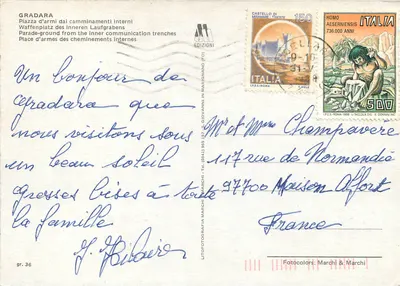 GRADARA
Piazza d'armi dai camminamenti interni
Waffenplatz des inneren Laufgrabens
Parade-ground from the inner communication trenches
Place d'armes des cheminements internes
EDIZIONI
CASTELLO DI
150
ITALIA
HOMO
AESERNIENSIS
736.000 ANNI
ITALIA
500
Un bonjour de
Gradara que
nous visitons sous
un beau soleil
Grosses bises à toute
la famille
J. Hilaire
Mr et Mme Champavere
117 rue de Normandie
97700 Maison Alfort
France
gr. 36
Fotocolori, Marchi & Marchi